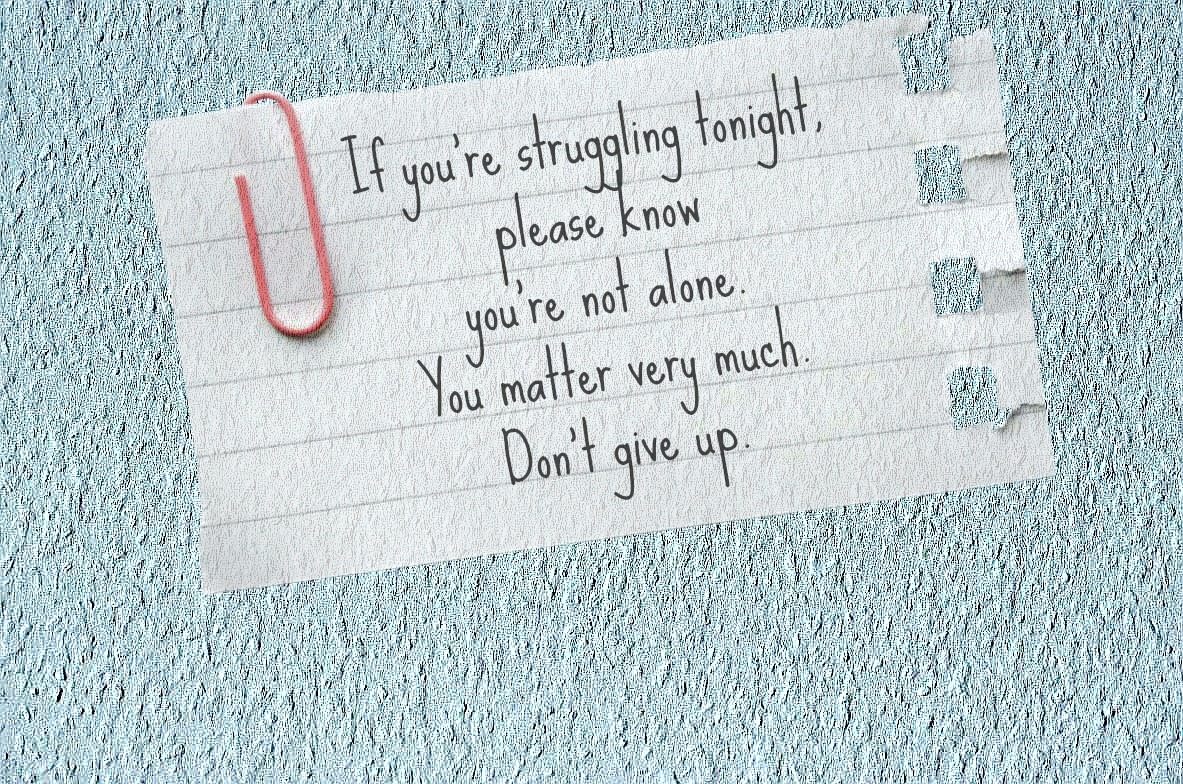 If you're struggling tonight,
please know
you're not alone.
You matter very much.
Don't give up.